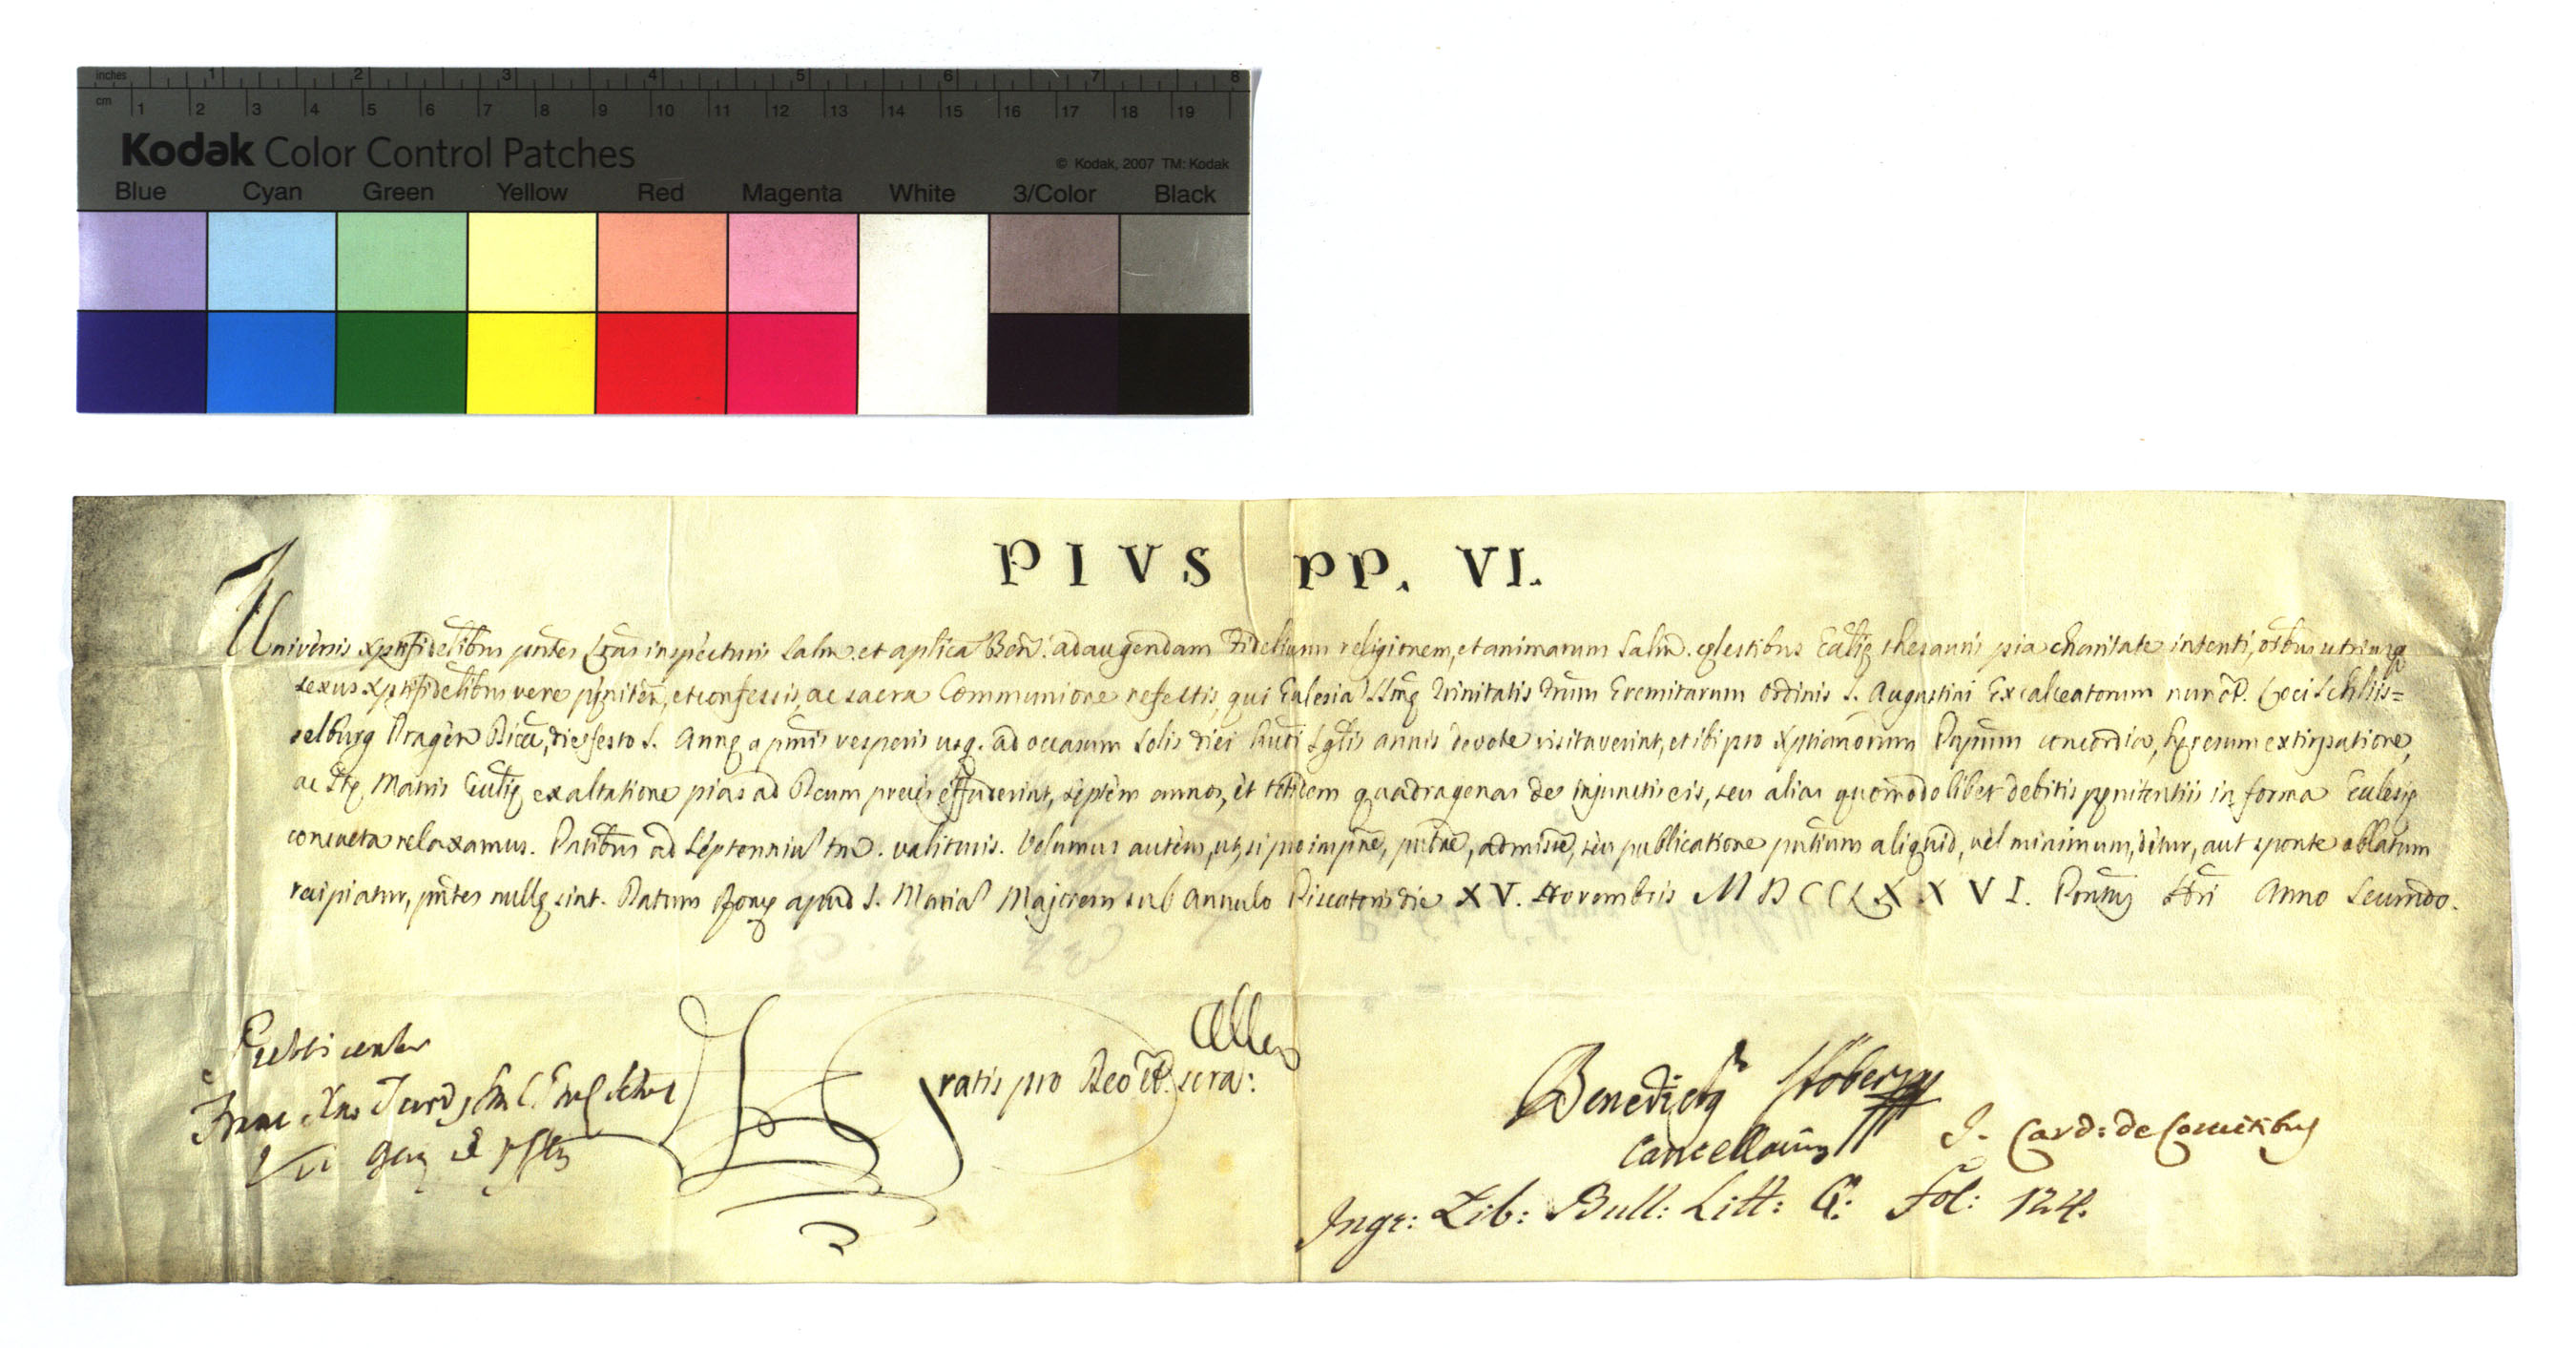 inches 1 2 3 4 5 6 7 8
cm 1 2 3 4 5 6 7 8 9 10 11 12 13 14 15 16 17 18 19
Kodak Color Control Patches
© Kodak, 2007 TM: Kodak
Blue Cyan Green Yellow Red Magenta White 3/Color Black
PIVS PP. VI.
Universis Xptifidelibus pntes Lras inspecturis Salm. et aplica Ben. ad augendam Fidelium religionem, et animarum Salm. cęlestibus Ecclię thesauris pia charitate intenti, oibus utriusq
sexus Xptifidelibus vere pęniten, et confessis, ac sacra Communione refectis, qui Ecclesia SSmę Trinitatis Frum Eremitarum Ordinis S. Augustini Excalceatorum nuncp. Loci Schlis=
selburg Pragen Diœc, die festo S. Annę a pmis vesperis usq. ad occasum Solis diei hmoi Sglis annis devote visitaverint, et ibi pro Xptianorum Prpum concordia, hęresum extirpatione,
ac Stę Matris Ecclię exaltatione pias ad Deum preces effuderint, septem annos, et totidem quadragenas de injunctis eis, seu alias quomodolibet debitis pęnitentiis in forma Ecclesię
consueta relaxamus. Pntibus ad Septenniu tm. valituris. Volumus autem, ut, si pro impne, pntne, admisne, seu publicatione pntium aliquid, vel minimum, detur, aut sponte oblatum
recipiatur, pntes nullę sint. Datum Romę apud S. Maria Majorem sub Annulo Piscatoris die XV. Novembris MDCCLXXVI. Pontus Nri Anno Secundo.
Publicentur
Gratis pro Deo et scra:
Benedictg
Cancellarius
I. Card: de Comitibus
Ingr: Lib: Bull: Litt: G: Fol: 124.